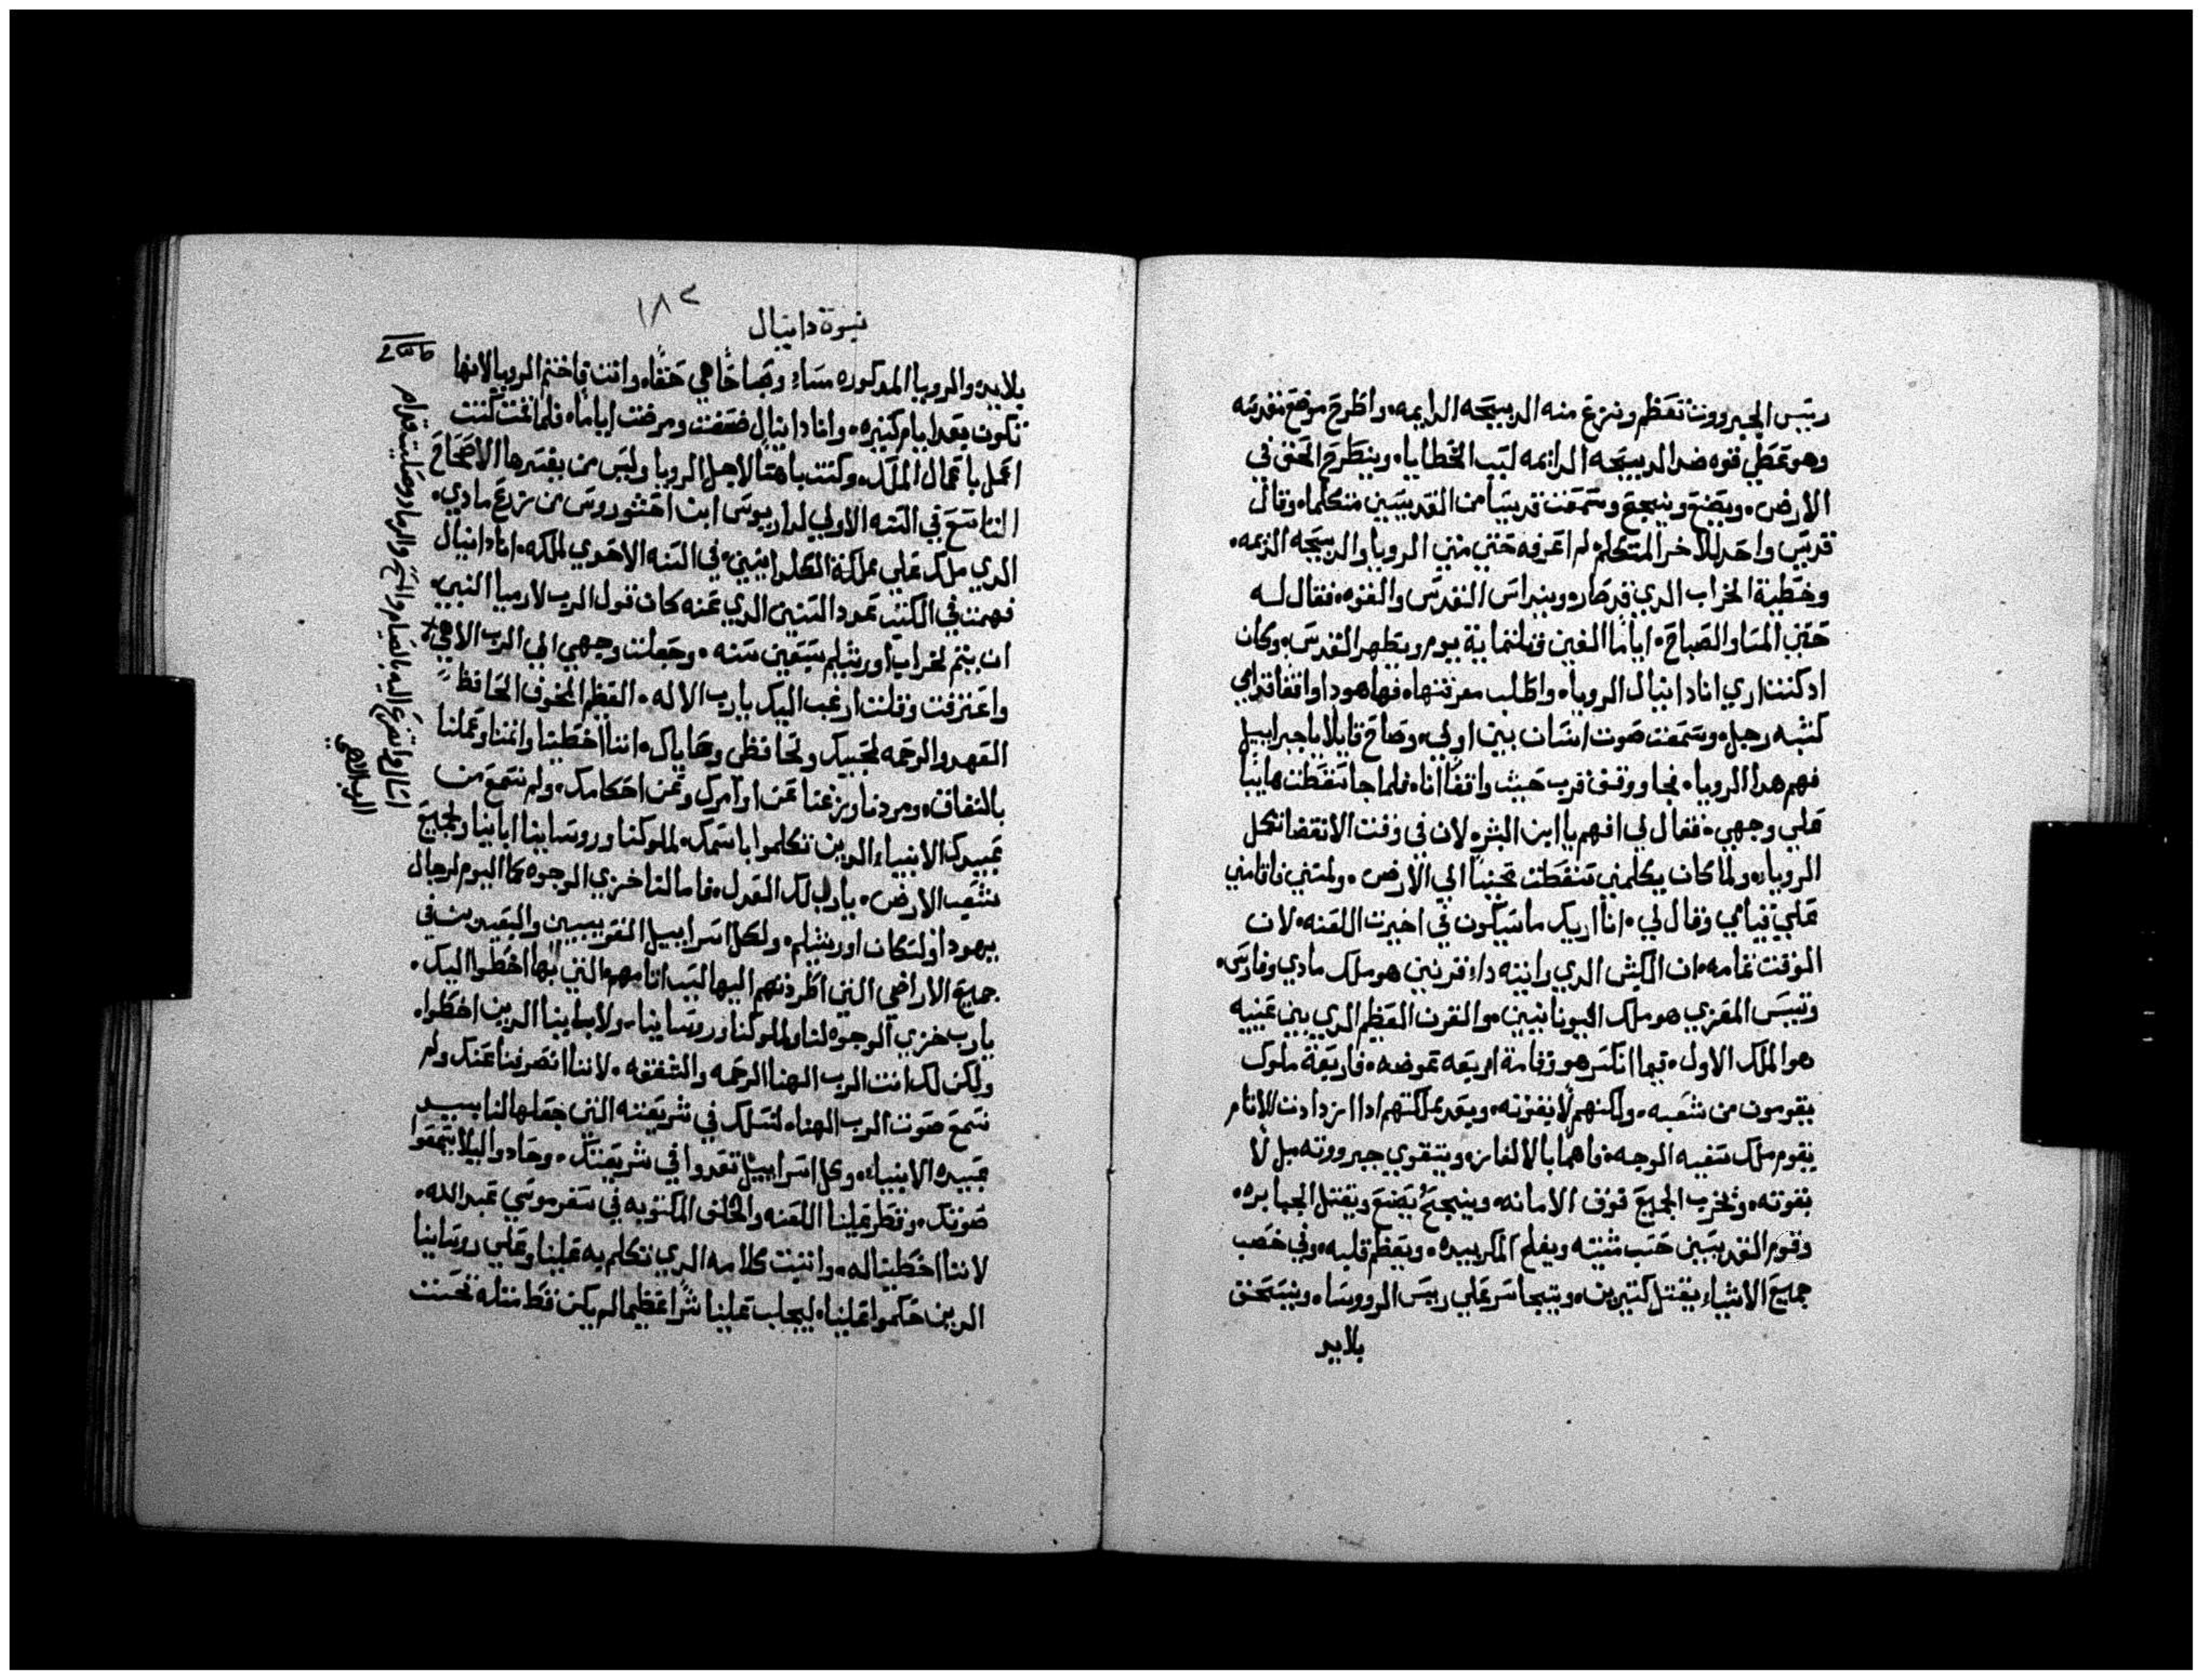 رييس الجبرووت تعظم ونزع منه الدبيحه الدايمه، واطرح موضع تقدسه
وهو تعطي قوه ضد الدبيحه الدايمه لسبب الخطايا، وينطرح الحق في
الارض، ويصنع وينجح وسمعت قديسا من القديسين متكلما، وقال
قديس واحد للآخر المتكلم لم اعرفه حتى متى الرويا والدبيحه الدايمه،
وخطية الخراب الدي قد صار، وينداس القدس والقوه، فقال له
حتى المسا والصباح، اياما الفين وتلتماية يوم ويطهر القدس، وكان
اد كنت اري انا دانيال الرويا، واطلب معرفتها، فها هودا واقفا قدامي
كشبه رجل، وسمعت صوت انسان بين اولي، وصاح قايلا يا جبراييل
فهم هدا الرويا، فجا ووقف قرب حيث واقفا انا، فلما جا سقطت هايبا
علي وجهي، فقال لي افهم يا ابن البشر، لان في وقت الانقضا تكمل
الرويا، ولما كان يكلمني سقطت محنيا الي الارض، ولمسني فاقامني
علي قيامي وقال لي، انا اريك ما سيكون في اخيرت اللعنه، لان
الموقت تمامه، ان الكبش الدي رايته دا قرنين هو ملك مادي وفارس،
وتيس المعزي هو ملك اليونانيين، والقرن العظم الدي بين عينيه
هو الملك الاول، فيما انكسر هو وقامة اربعه عوضه، فاربعة ملوك
يقومون من شعبه، ولكنهم لا بقوته، وبعد مملكتهم ادا ازدادت الاتام
يقوم ملك سفيه الوجه، فاهما بالالغاز، ويتقوي جبرووته، بل لا
بقوته، ويخرب الجميع فوق الامانه، وينجح، يصنع ويقتل الجبابره،
وقوم القديسين حسب مشيته ويفلح المكر بيده، ويعظم قلبه، وفي خصب
جميع الاشياء يقتل كتيرين، ويتجاسر علي رييس الرووسا، وينسحق
بلا يد
١٨٢
نبوة دانيال
بلا يد، والرويا المدكوره مساء وصباحا هي حقا، وانت فاختم الرويا لانها
تكون بعد ايام كتيره، وانا دانيال ضعفت ومرضت اياما، فلما قمت كنت
اعمل باعمال الملك، وكنت باهتا لاجل الرويا وليس من يفسرها الاصحاح
التاسع في السنه الاولي لداريوس ابن احشوروس من زرع مادي،
الدي ملك علي مملكة الكلدانيين، في السنه الاحدي لملكه، انا دانيال
فهمت في الكتب عدد السنين الدي عنه كان قول الرب لارميا النبي،
ان يتم لخراب اورشليم سبعين سنه، وجعلت وجهي الي الرب الاهي
واعترفت وقلت ارغب اليك يا رب الاله، العظم المخوف الحافظ
العهد والرحمه لمحبيك ولحافظي وصاياك، اننا اخطينا واتمنا وعملنا
بالنفاق، ومردنا وزغنا عن اوامرك وعن احكامك، ولم نسمع من
عبيدك الانبياء الدين تكلموا باسمك، لملوكنا وروساينا ابابنا ولجميع
شعب الارض، يا رب لك العدل، فاما لنا خزي الوجوه كما اليوم لرجال
يهودا ولسكان اورشليم، ولكل اسراييل القريبيين والبعيدين في
جميع الاراضي التي اطردتهم اليها لسبب اتامهم التي بها اخطوا اليك،
يا رب خزي الوجوه لنا ولملوكنا وروساينا، ولابابنا الدين اخطوا،
ولكن لك انت الرب الهنا الرحمه والشفقه، لاننا انصرفنا عنك ولم
نسمع صوت الرب الهنا، لنسلك في شريعته التي جعلها لنا بيد
عبيده الانبياء، وكل اسراييل تعدوا في شريعتك، وحادوا ليلا يسمعوا
صوتك، وقطر علينا اللعنه والحلف المكتوبه في سفر موسي عبد الله،
لاننا اخطينا له، واتبت كلامه الدي تكلم به علينا وعلي روساينا
الدين حكموا علينا، ليجلب علينا شرا عظيما لم يكن قط متله تحت
اسال واتضرع اليه بالصيام والمسح والرماد وصليت قدام
الرب الاهي